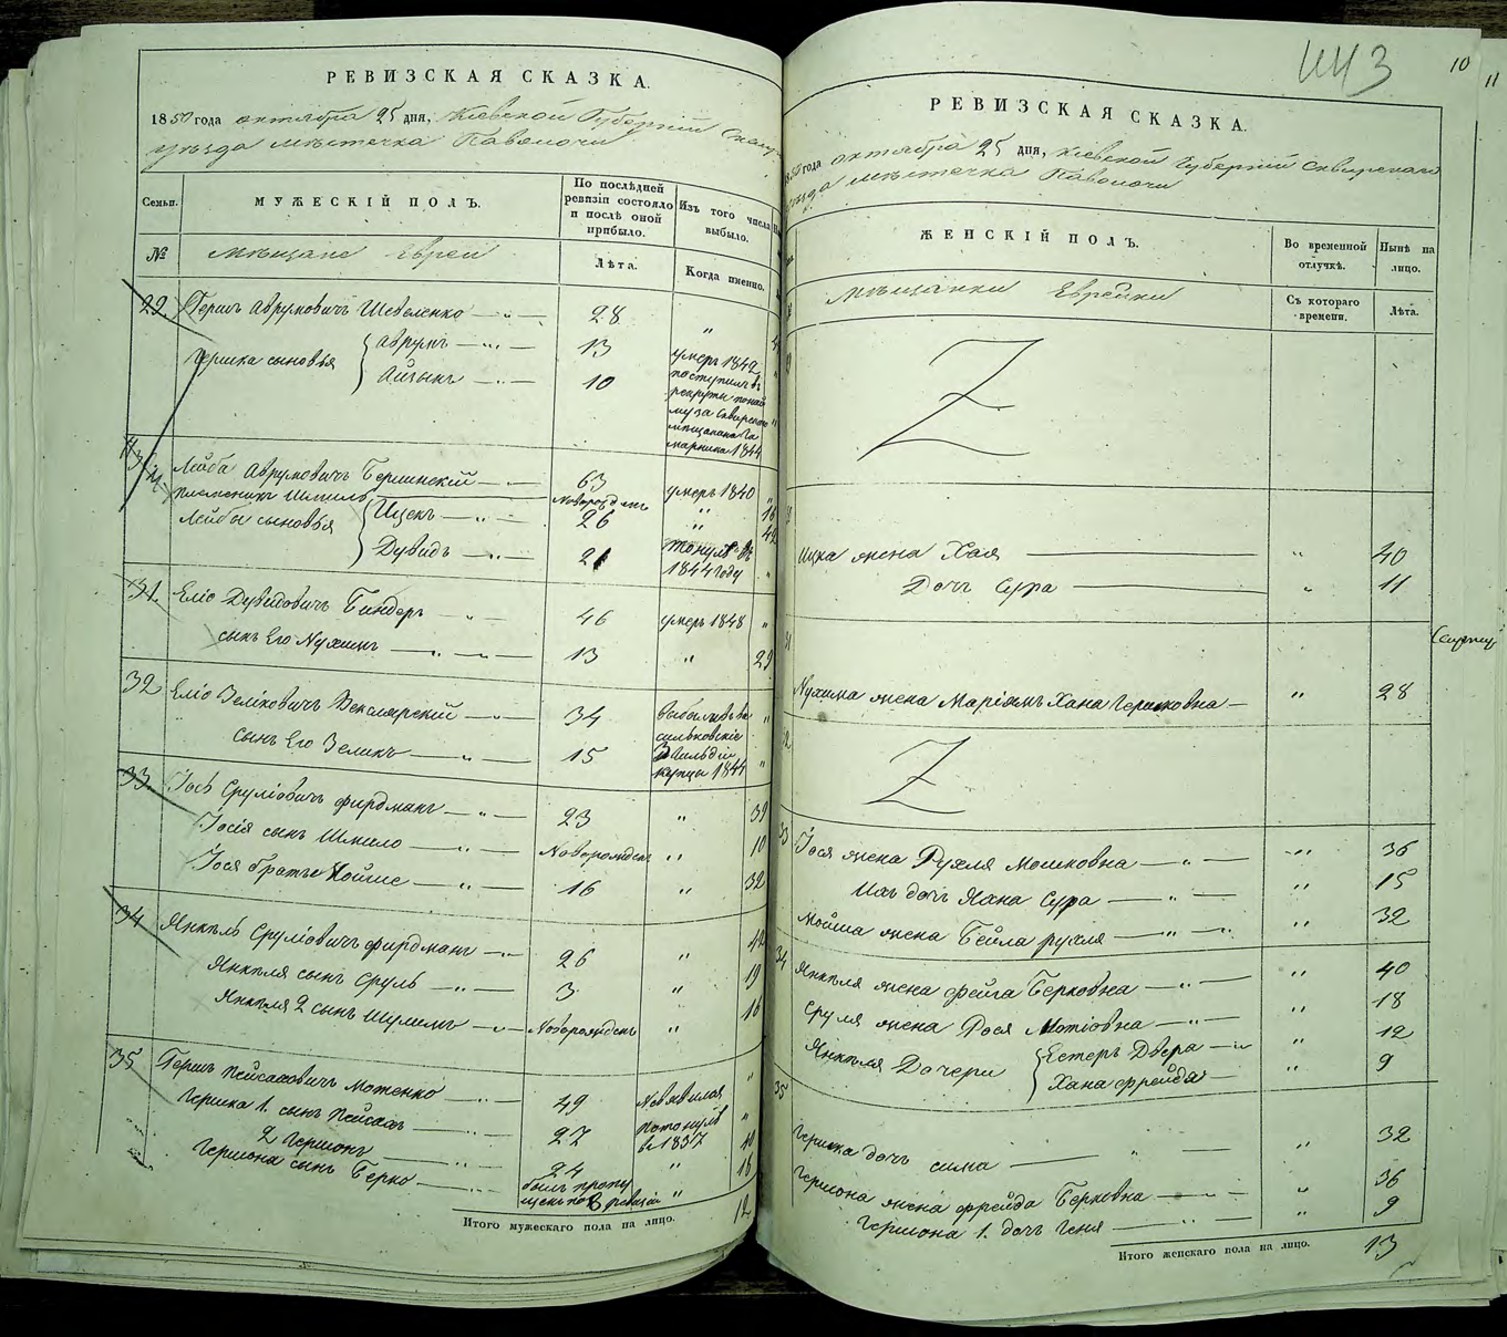 РЕВИЗСКАЯ СКАЗКА.
1850 года октября 25 дня, Кіевской Губерніи
уѣзда мѣстечка Паволочи
Семьи.
МУЖЕСКІЙ ПОЛЪ.
По послѣдней
ревизіи состояло
и послѣ оной
прибыло.
Изъ того числа
выбыло.
№
Мѣщане Евреи
Лѣта.
Когда именно.
29 Гершъ Аврумовичъ Шевеленко 28 "
Гершка сыновья { Аврумъ 13 умеръ 1842
Айзыкъ 10 поступилъ въ
рекруты
му за Сквирскаго
мѣщанина
1844
Лейба Аврумовичъ 63 умеръ 1840 "
племеникъ Шмиль Новорожден " 16
Лейбы сыновья { Ицекъ 26 " 42
Дувидъ 21
1844 году "
31. Еліо Дувидовичъ Биндеръ 46 умеръ 1848 "
сынъ Его Нухимъ 13 " 29
32 Еліо Зеліковичъ 34 выбылъ въ Ва "
сильковскіе
сынъ Его Зеликъ 15 3 гильдіи
купцы 1844 "
33. Іось Сруліовичъ Фирдманъ 23 " 39
Іосія сынъ Шмило Новорожден " 10
Іося братъ Мойше 16 " 32
34 Янкель Сруліовичъ Фирдманъ 26 " 42
Янкеля сынъ Сруль 3 " 19
Янкеля 2 сынъ Шулимъ Новорожденъ " 16
35 Гершъ Пейсаховичъ Моженко 49 "
Гершка 1. сынъ Пейсахъ 27 потонулъ
в 1837 "
2 Гершонъ 24 " 40
Гершона сынъ Берко былъ пропу
щенъ по 8 ревизіи " 18
Итого мужескаго пола на лицо. 12
10
11
РЕВИЗСКАЯ СКАЗКА.
1850 года октября 25 дня, Кіевской Губерніи Сквирскаго
уѣзда мѣстечка Паволочи
ЖЕНСКІЙ ПОЛЪ.
Во временной
отлучкѣ.
Нынѣ на
лицо.
Мѣщанки Еврейки
Съ котораго
времени.
Лѣта.
Ицка жена Хая " 40
Дочь Сура " 11
Нухима жена Маріямъ Хана Гершковна " 28
32
33 Іося жена Рухля Мошковна " 36
Ихъ дочь Хана Сура " 15
Мойша жена Бейла рухля " 32
34 Янкеля жена Фейга Берковна " 40
Сруля жена Рося Мотіовна " 18
Янкеля Дочери { Естеръ Двера " 12
Хана Фрейда " 9
35
Гершка дочь Сима " 32
Гершона жена Фрейда Берковна " 36
Гершона 1. дочь Геня " 9
Итого женскаго пола на лицо. 13